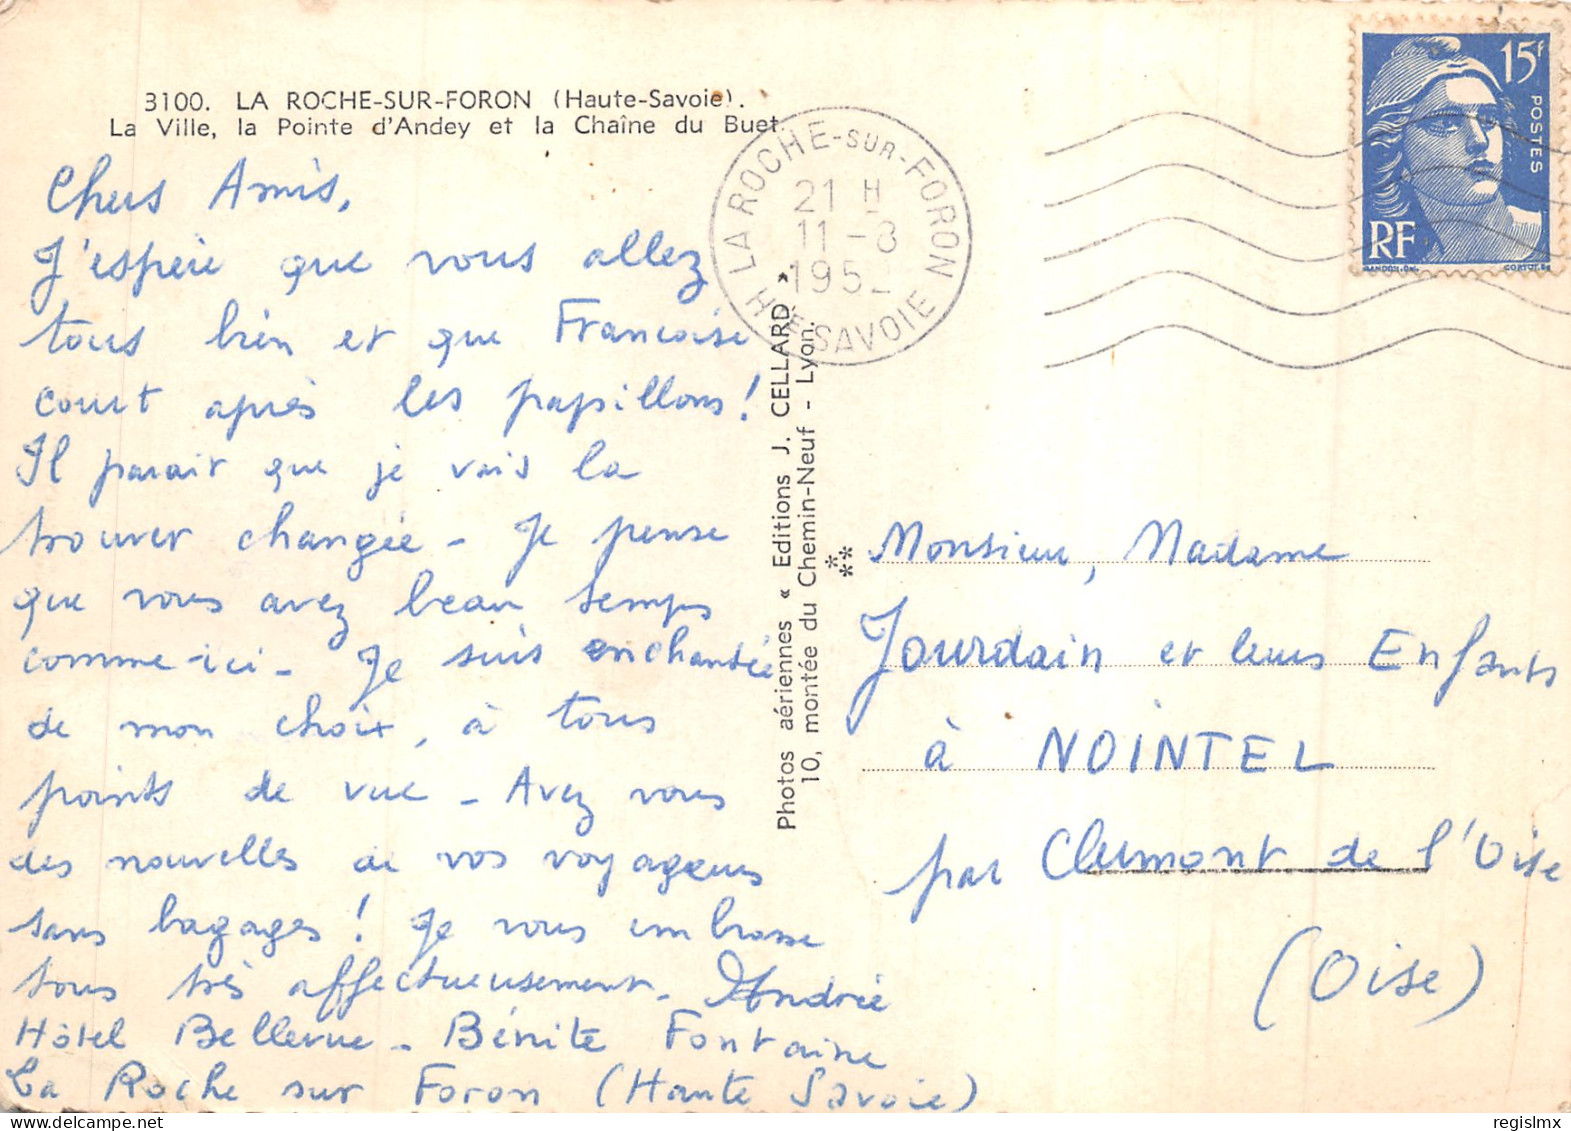 3100. LA ROCHE-SUR-FORON (Haute-Savoie).
La Ville, la Pointe d'Andey et la Chaîne du Buet.
Chers Amis,
J'espère que vous allez
tous bien et que Francoise
court après les papillons!
Il parait que je vais la
trouver changée - Je pense
que vous avez beau temps
comme ici - Je suis enchantée
de mon choix, à tous
points de vue - Avez vous
des nouvelles de vos voyageurs
sans bagages! Je vous embrasse
tous très affectueusement. Andrée
Hôtel Bellevue - Bénite Fontaine
La Roche sur Foron (Haute Savoie)
Photos aériennes « Editions J. CELLARD »
10, montée du Chemin-Neuf - Lyon.
LA ROCHE-SUR-FORON
21 H
11-8
195
Hte SAVOIE
15f
POSTES
RF
GANDON. Del.
CORTOT. Sc
Monsieur, Madame
Jourdain et leurs Enfants
à NOINTEL
par Clermont de l'Oise
(Oise)
regislmx